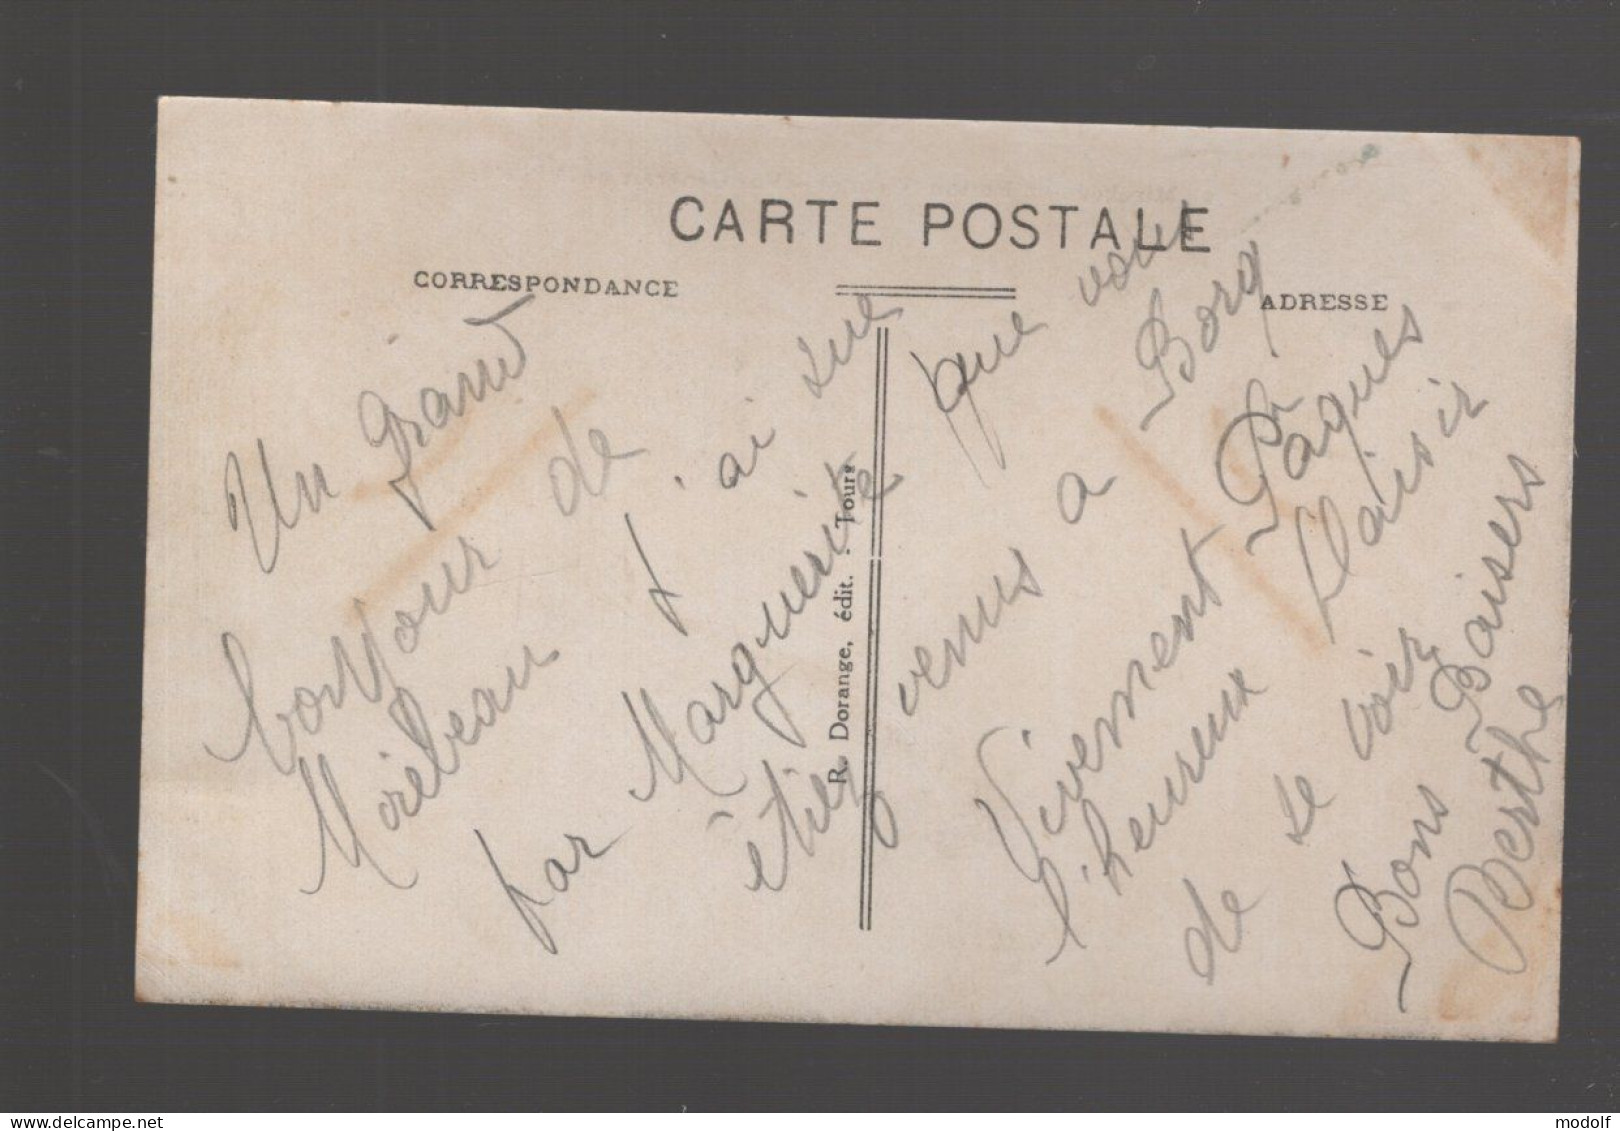 CARTE POSTALE
CORRESPONDANCE
ADRESSE
R. Dorange, édit. - Tours
Un grand
bonjour de
Mirebeau j'ai sue
par Marguerite que vous
êtiez venus a Borq
Vivement Pâques
l'heureux Plaisir
de se voir
Bons Baisers
Berthe
delcampe.net
modolf